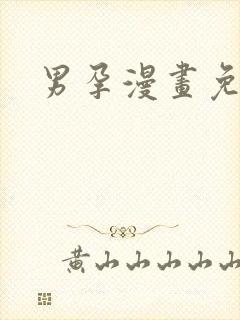 男孕漫畫免
黄山山山山